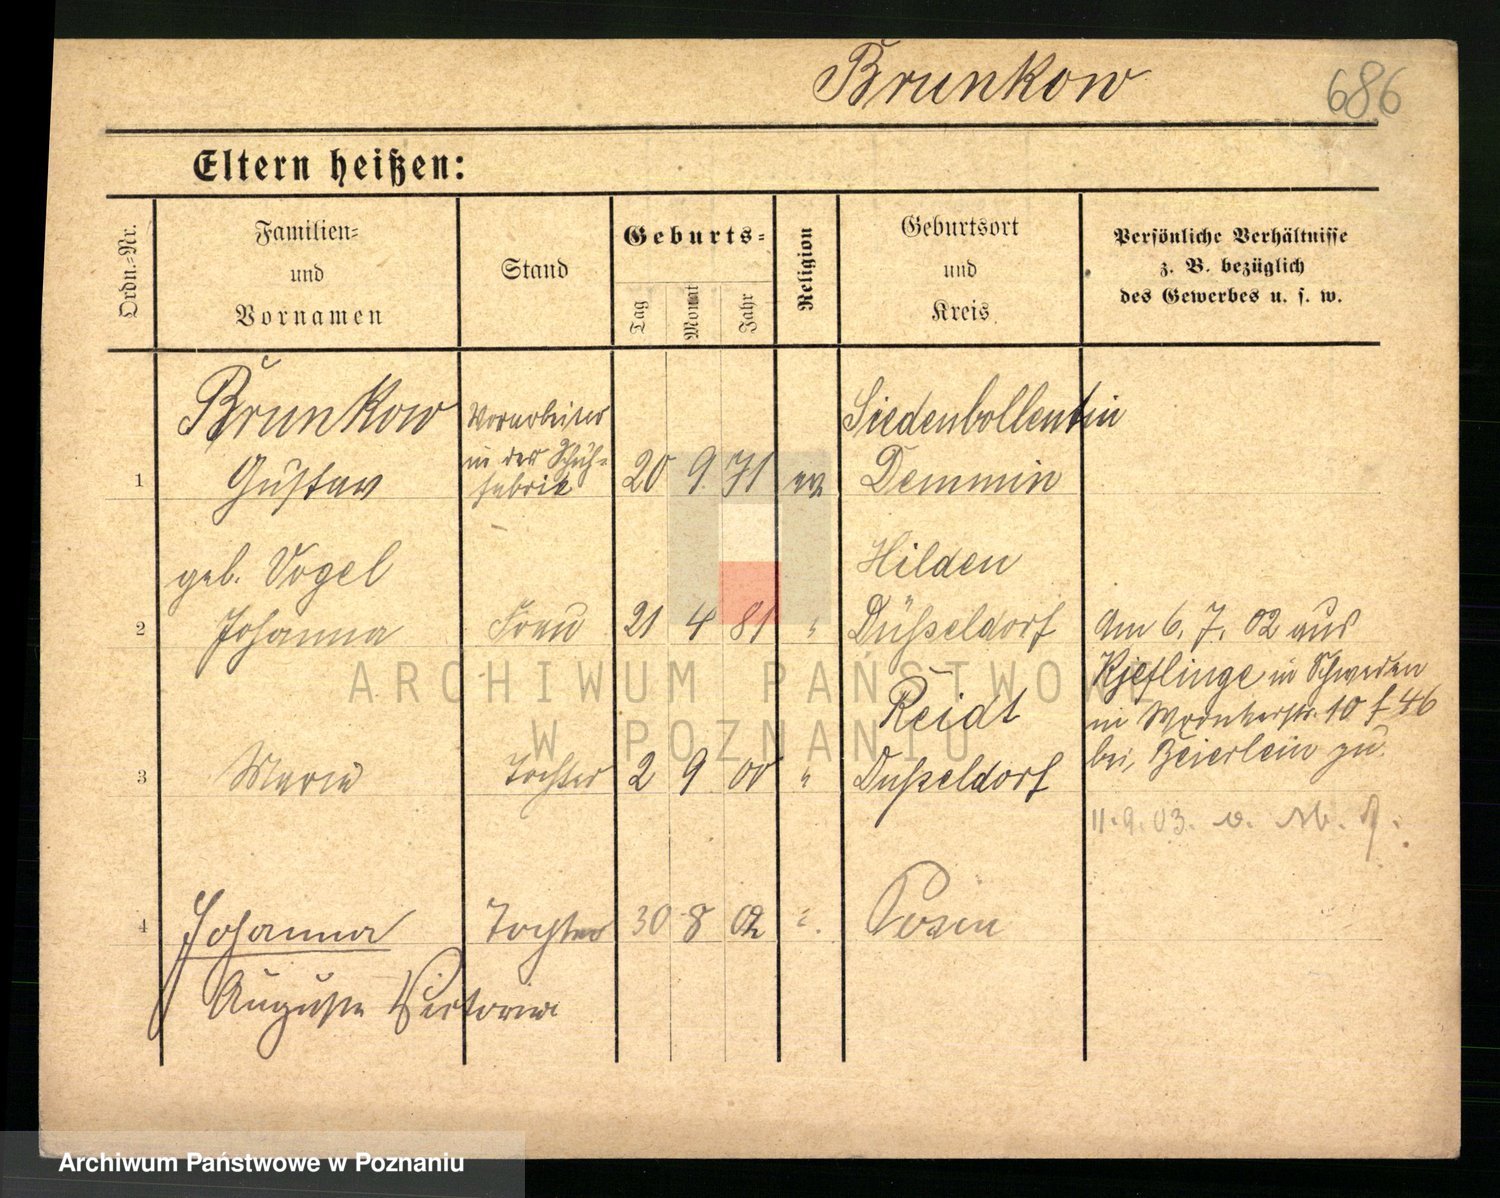 Brunkow 686
Eltern heißen:
Ordn.-Nr.
Familien-
und
Vornamen
Stand
Geburts-
Tag
Monat
Jahr
Religion
Geburtsort
und
Kreis
Persönliche Verhältnisse
z. B. bezüglich
des Gewerbes u. s. w.
Brunkow Vorarbeiter Siedenbollentin
1 Gustav in der Schuh- fabrik 20 9. 71 ev. Demmin
geb. Vogel Hilden
2 Johanna Frau 21 4 81 " Düsseldorf
Reidt
3 Marie Tochter 2 9 00 " Düsseldorf
Am 6. 7. 02 aus
Kjeflinge in Schweden
in 10 f 46
bei Beierlein zu.
11. 9. 03. v.
4 Johanna Tochter 30 8 02 ". Posen
Auguste Victoria
ARCHIWUM PAŃSTWOWE
W POZNANIU
Archiwum Państwowe w Poznaniu